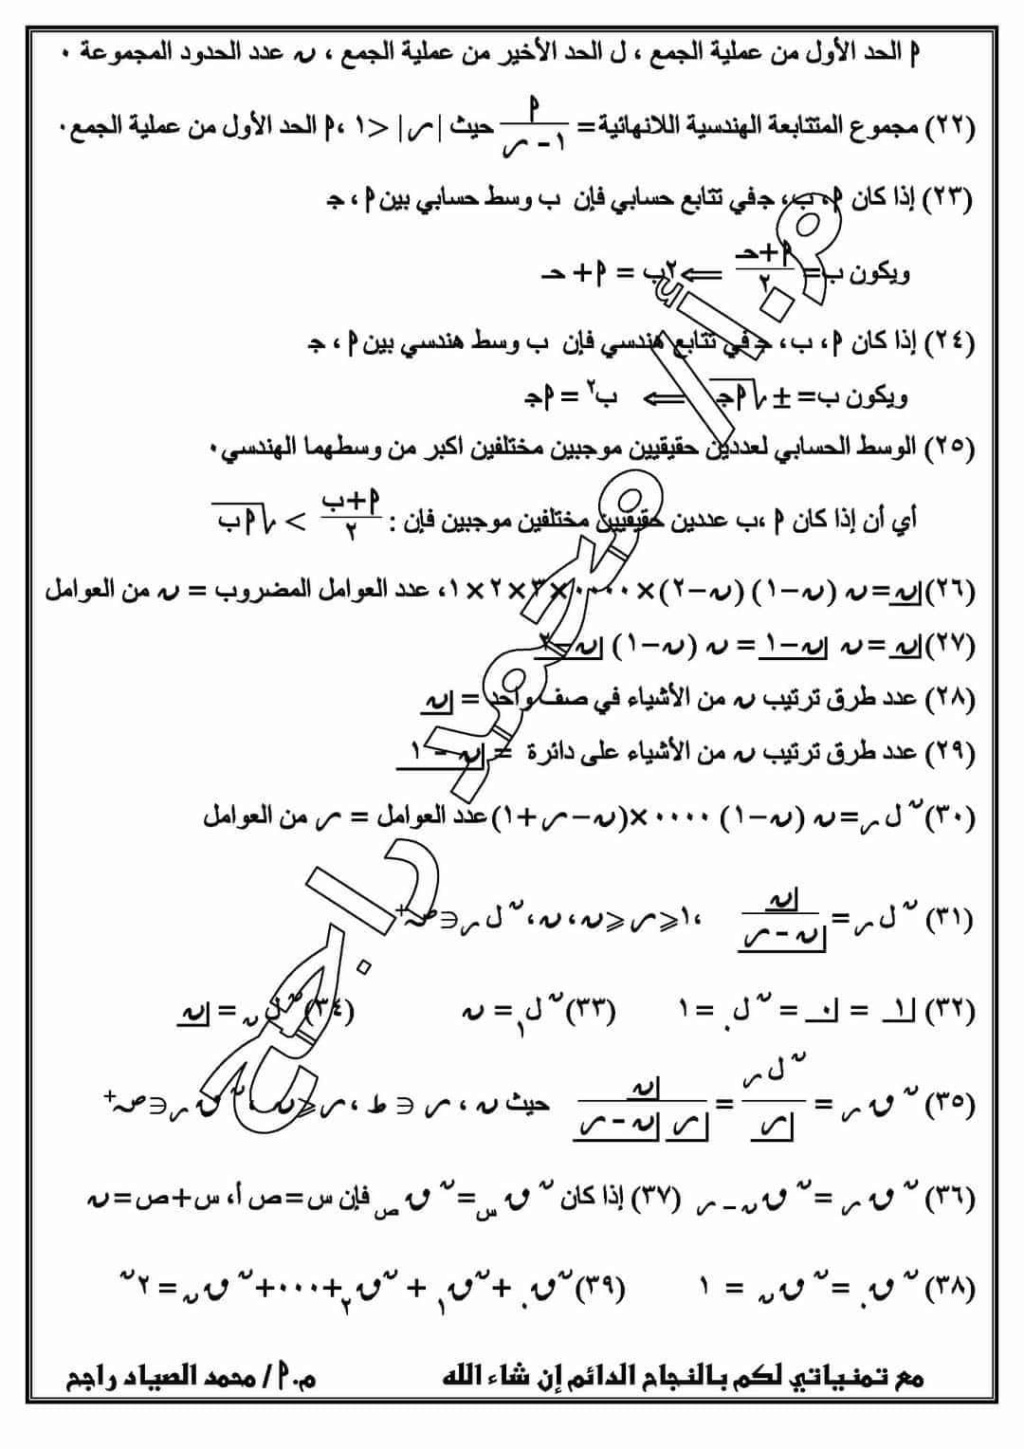 أ الحد الأول من عملية الجمع ، ل الحد الأخير من عملية الجمع ، ن عدد الحدود المجموعة ٠
(٢٢) مجموع المتتابعة الهندسية اللانهائية = أ/(١ - ر) حيث |ر| < ١ ، أ الحد الأول من عملية الجمع٠
(٢٣) إذا كان أ ، ب ، جـ في تتابع حسابي فإن ب وسط حسابي بين أ ، جـ
ويكون ب = (أ + حـ)/٢ ⟸ ٢ب = أ + حـ
(٢٤) إذا كان أ ، ب ، جـ في تتابع هندسي فإن ب وسط هندسي بين أ ، جـ
ويكون ب = ± √(أجـ) ⟸ ب² = أجـ
(٢٥) الوسط الحسابي لعددين حقيقيين موجبين مختلفين اكبر من وسطهما الهندسي٠
أي أن إذا كان أ ،ب عددين حقيقيين مختلفين موجبين فإن : (أ+ب)/٢ > √(أب)
(٢٦) |ن = ن (ن−١) (ن−٢) × ٠٠٠٠ × ٣ × ٢ × ١، عدد العوامل المضروب = ن من العوامل
(٢٧) |ن = ن |ن−١ = ن (ن−١) |ن−٢
(٢٨) عدد طرق ترتيب ن من الأشياء في صف واحد = |ن
(٢٩) عدد طرق ترتيب ن من الأشياء على دائرة = |ن − ١
(٣٠) ن ل ر = ن (ن−١) ٠٠٠٠ ×(ن−ر+١) عدد العوامل = ر من العوامل
(٣١) ن ل ر = |ن / |ن − ر ، ١⩽ر⩽ن ،ن ، ن ل ر ∈ ص+
(٣٢) |١ = |٠ = ن ل ٠ = ١ (٣٣) ن ل ١ = ن (٣٤) ن ل ن = |ن
(٣٥) ن ق ر = ن ل ر / |ر = |ن / |ر |ن − ر حيث ن ، ر ∈ ط ، ر⩽ن ، ن ق ر ∈ ص+
(٣٦) ن ق ر = ن ق ن−ر (٣٧) إذا كان ن ق س = ن ق ص فإن س = ص أ، س+ص = ن
(٣٨) ن ق ٠ = ن ق ن = ١ (٣٩) ن ق ٠ + ن ق ١ + ن ق ٢ +٠٠٠+ ن ق ن = ٢ ن
مع تمنياتي لكم بالنجاح الدائم إن شاء الله م.أ / محمد الصياد راجح